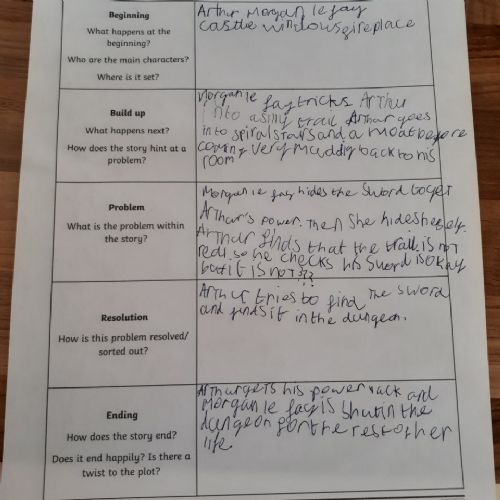 Beginning
What happens at the
beginning?
Who are the main characters?
Where is it set?
Arthur Morgan le fay
castle windows fireplace
Build up
What happens next?
How does the story hint at a
problem?
Morgan le fay tricks Arthur
into a silly trail Arthur goes
into spiral stairs and a moat before
coming very muddy back to his
room
Problem
What is the problem within
the story?
Morgan le fay hides the sword to get
Arthur's power. Then she hides
Arthur finds that the trail is not
real so he checks his sword is okay
but it is not???
Resolution
How is this problem resolved/
sorted out?
Arthur tries to find The sword
and finds it in the dungeon.
Ending
How does the story end?
Does it end happily? Is there a
twist to the plot?
Arthur gets his power back and
Morgan le fay is shut in the
dungeon for the rest of her
life